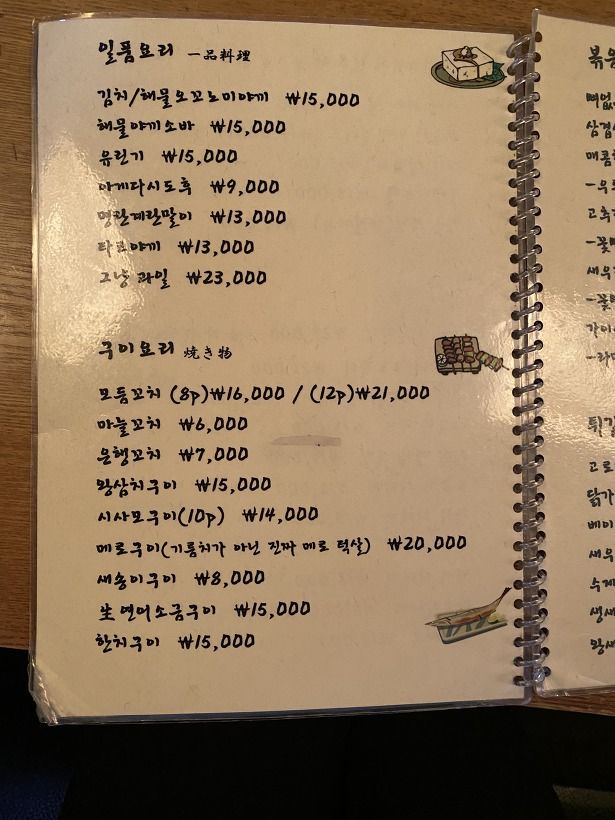 일품요리 一品料理
김치/해물오꼬노미야끼 ₩15,000
해물야끼소바 ₩15,000
유린기 ₩15,000
아게다시도후 ₩9,000
명란계란말이 ₩13,000
타코야끼 ₩13,000
그냥 과일 ₩23,000
구이요리 焼き物
모듬꼬치 (8p)₩16,000 / (12p)₩21,000
마늘꼬치 ₩6,000
은행꼬치 ₩7,000
왕삼치구이 ₩15,000
시사모구이(10p) ₩14,000
메로구이(기름치가 아닌 진짜 메로 턱살) ₩20,000
새송이구이 ₩8,000
生연어소금구이 ₩15,000
한치구이 ₩15,000